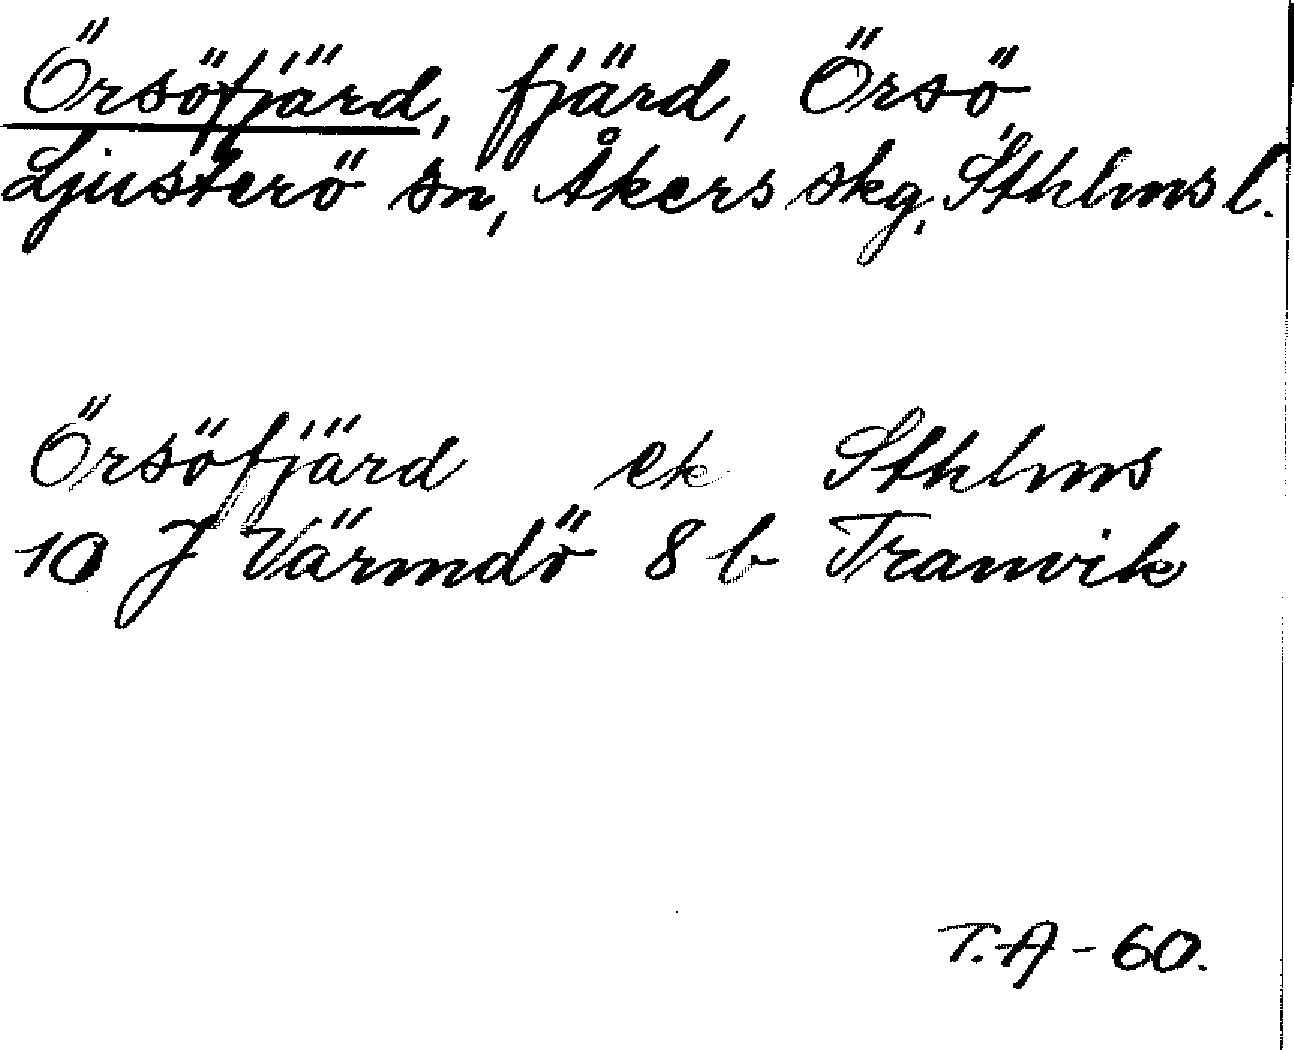 Örsöfjärd, fjärd, Örsö,
Ljusterö sn, Åkers skg, Sthlms l.
Örsöfjärd ek Sthlms
10 J Värmdö 8 b Tranvik
T.A - 60.